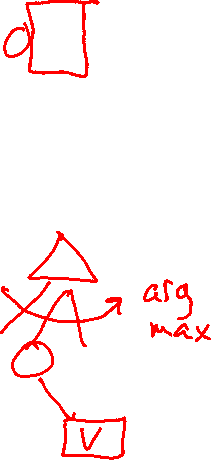 arg
max
V